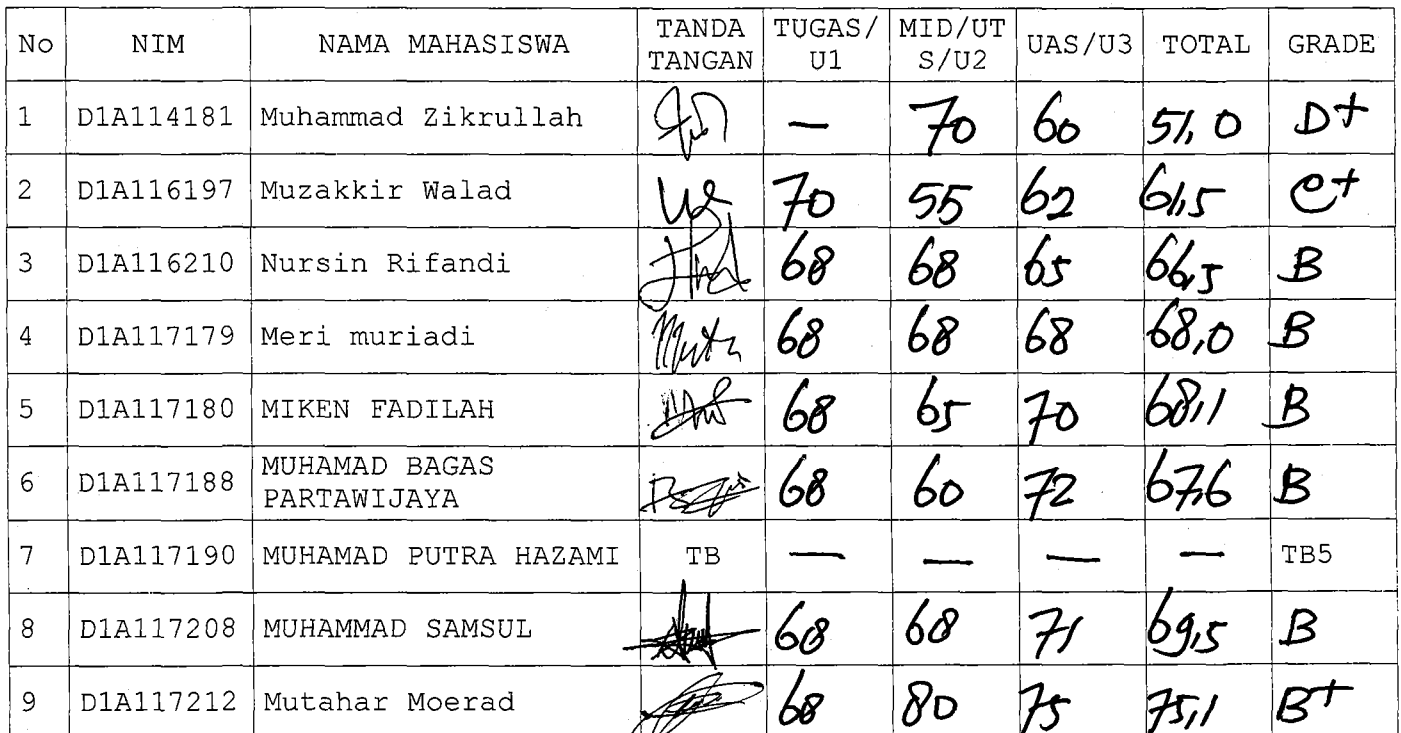 No NIM NAMA MAHASISWA TANDA TANGAN TUGAS/U1 MID/UTS/U2 UAS/U3 TOTAL GRADE
1 D1A114181 Muhammad Zikrullah — 70 60 51,0 D+
2 D1A116197 Muzakkir Walad 70 55 62 61,5 C+
3 D1A116210 Nursin Rifandi 68 68 65 66,5 B
4 D1A117179 Meri muriadi 68 68 68 68,0 B
5 D1A117180 MIKEN FADILAH 68 65 70 68,1 B
6 D1A117188 MUHAMAD BAGAS PARTAWIJAYA 68 60 72 67,6 B
7 D1A117190 MUHAMAD PUTRA HAZAMI TB — — — — TB5
8 D1A117208 MUHAMMAD SAMSUL 68 68 71 69,5 B
9 D1A117212 Mutahar Moerad 68 80 75 75,1 B+